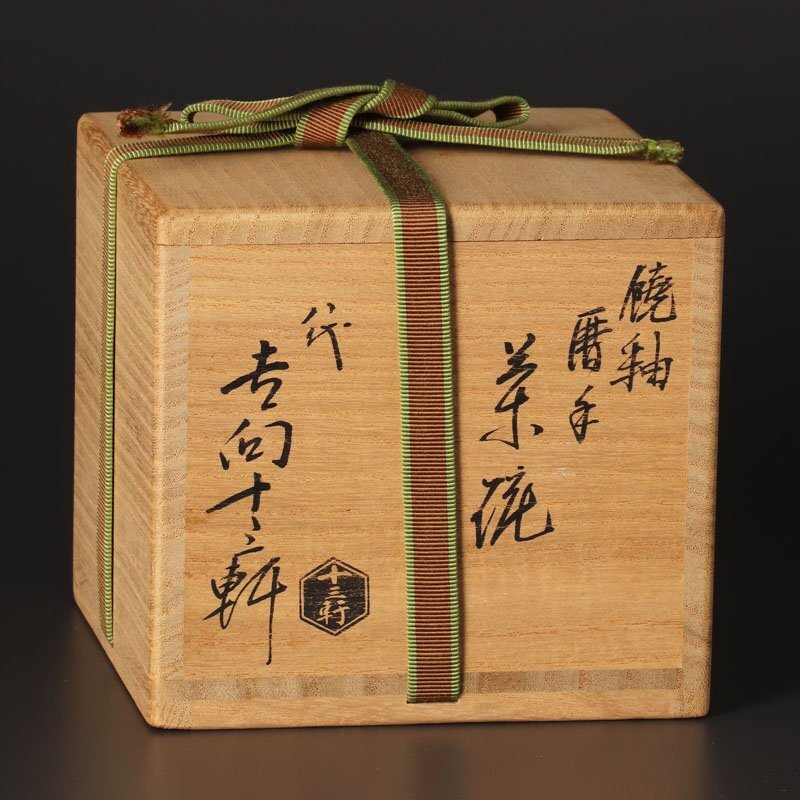 饒釉
暦手
茶碗
八代
吉向十三軒
十三軒